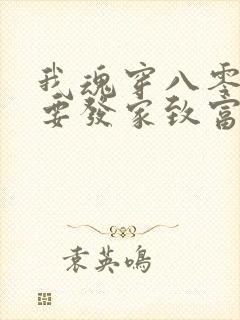 我魂穿八零
要發家致富
袁英鳴